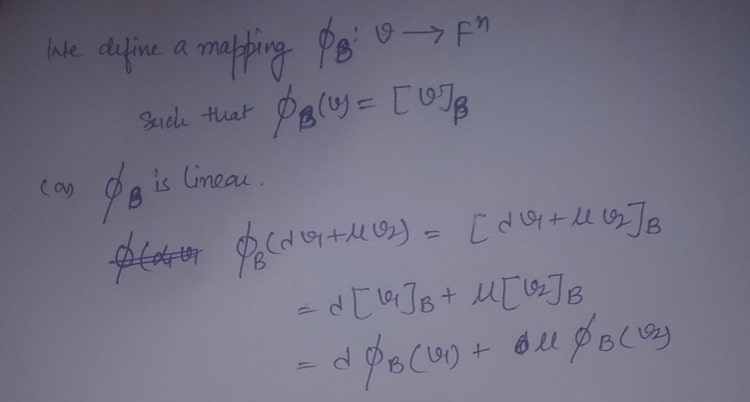 We define a mapping ϕ_B: V → F^n
Such that ϕ_B(v) = [v]_B
(a) ϕ_B is linear.
ϕ_B(αv₁+μv₂) = [αv₁+μv₂]_B
= α[v₁]_B + μ[v₂]_B
= αϕ_B(v₁) + μϕ_B(v₂)